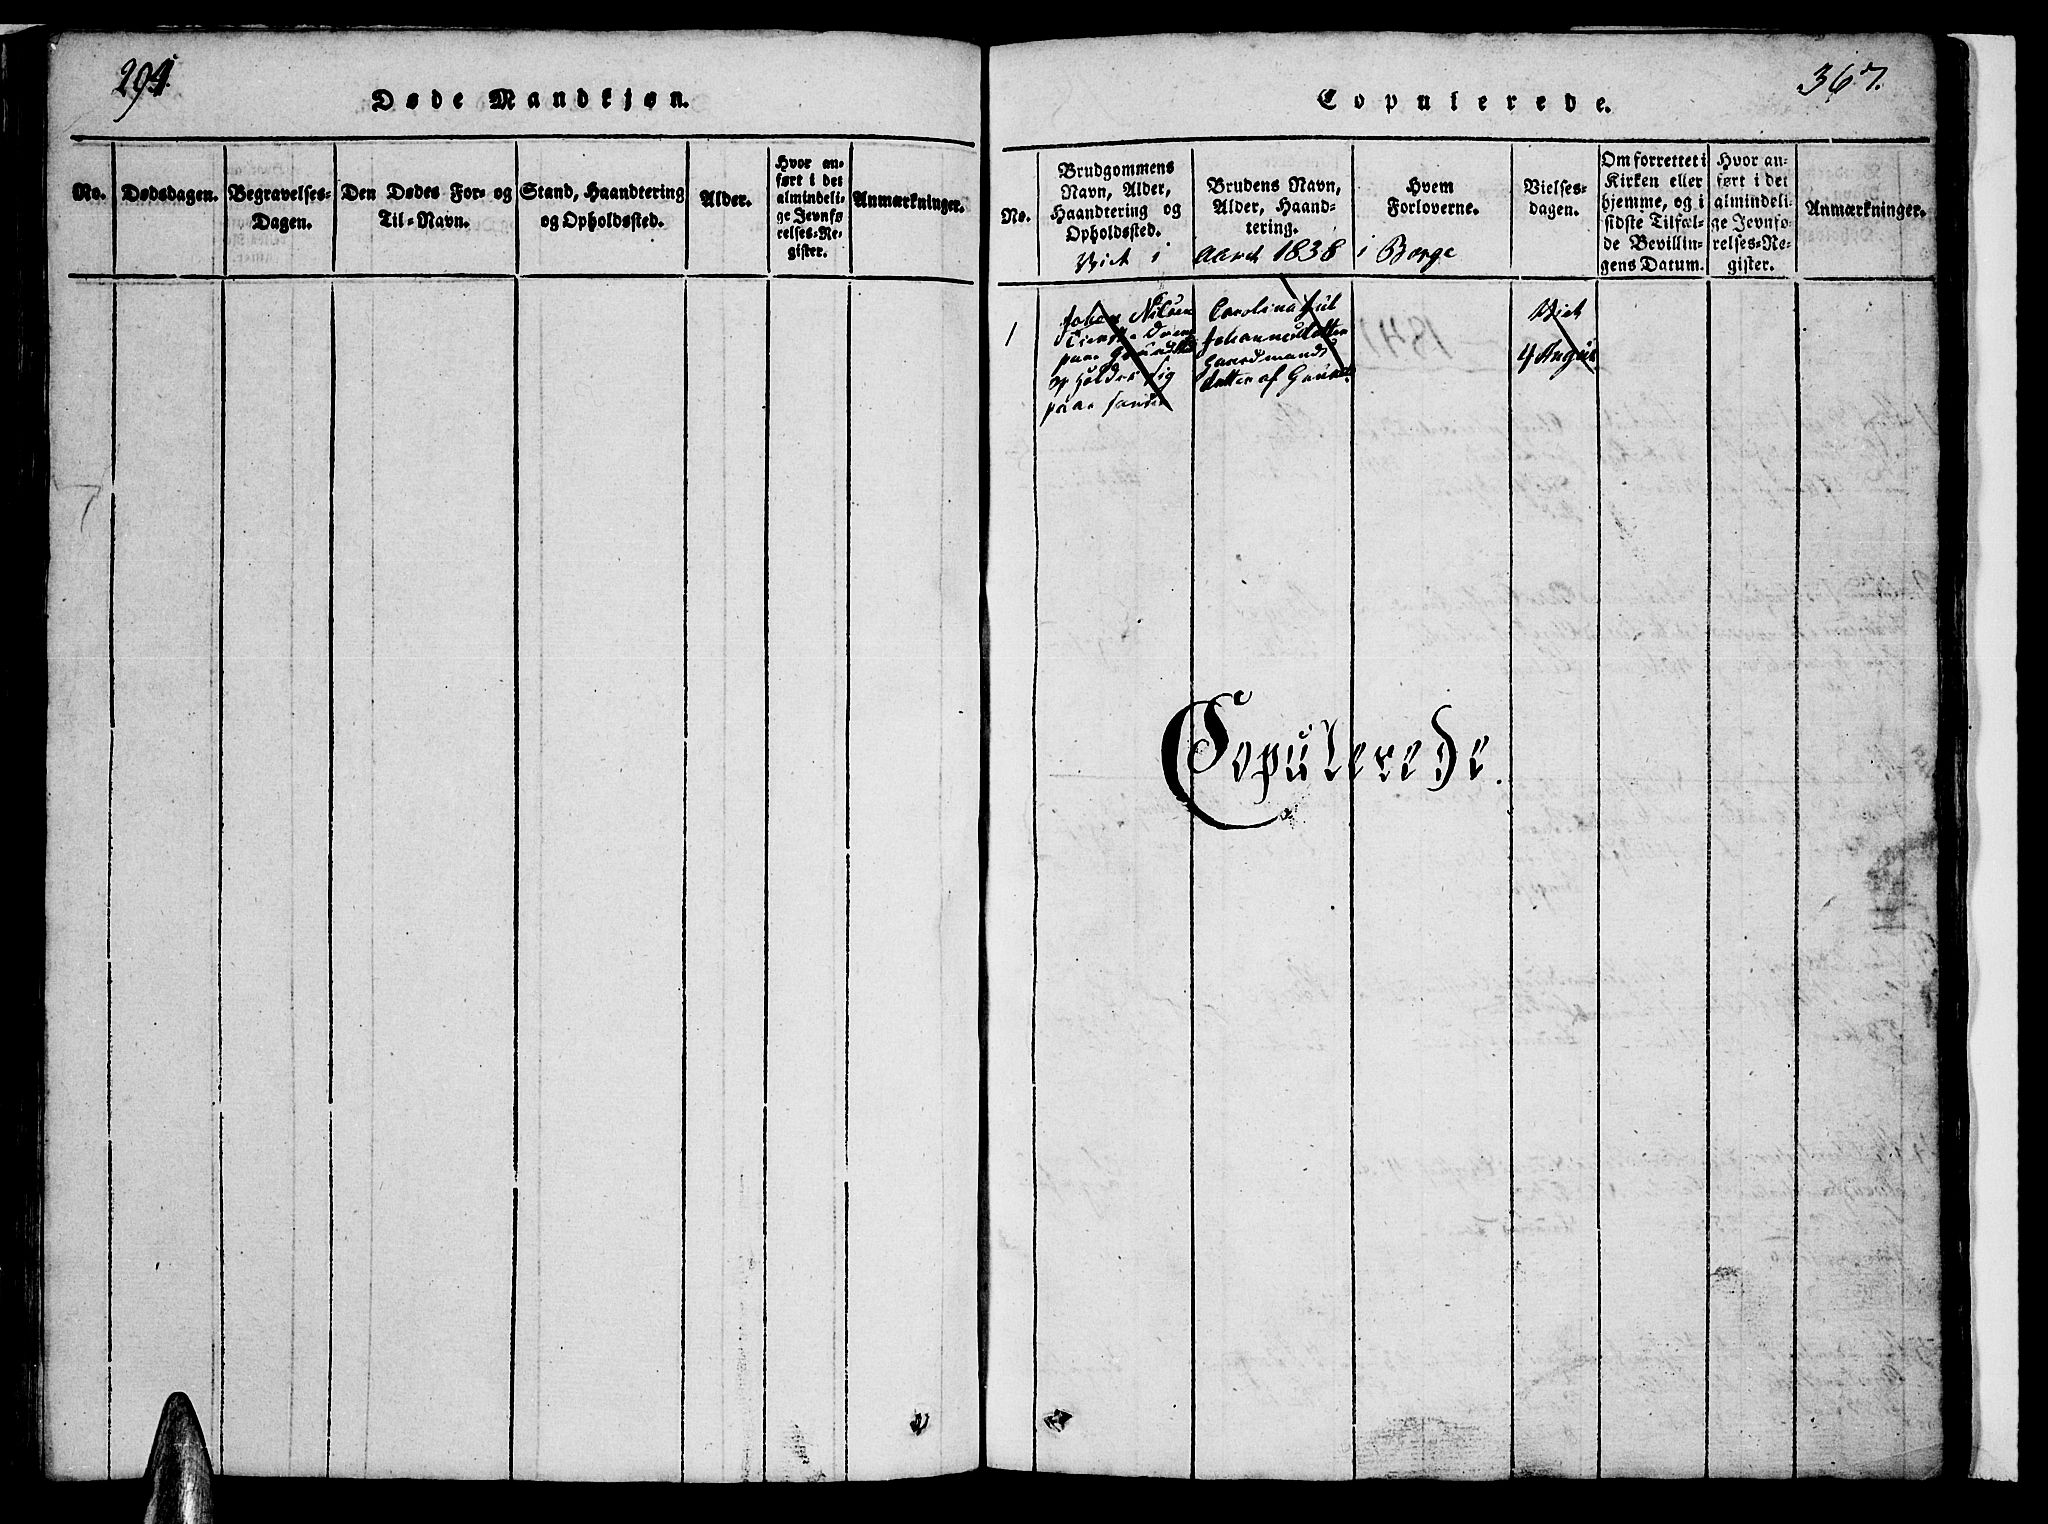 294.
Døde Mandkjøn.
No.
Dødsdagen.
Begravelses-
Dagen.
Den Dødes For- og
Til-Navn.
Stand, Haandtering
og Opholdssted.
Alder.
Hvor an-
ført i det
almindeli-
ge Jevnfø-
relses-Re-
gister.
Anmærkninger.
367.
Copulerede.
No.
Brudgommens
Navn, Alder,
Haandtering og
Opholdssted.
Viet i
Brudens Navn,
Alder, Haand-
tering.
Aaret 1838
Hvem
Forloverne.
i Borge
Vielses-
dagen.
Om forrettet i
Kirken eller
hjemme, og i
sidste Tilfæl-
de Bevillin-
gens Datum.
Hvor an-
ført i det
almindeli-
ge Jevnfø-
relses-Re-
gister.
Anmærkninger.
1
Johan Nilsen
paa
opholder sig
paa
Carolina Jul
Johannesdatter
Gaardmands
datter af
Viet
4 August
1841
Copulerede.